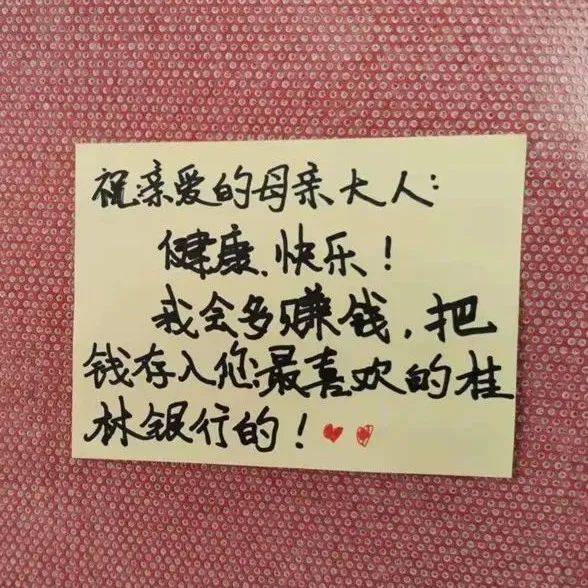 祝亲爱的母亲大人:
健康、快乐!
我会多赚钱,把
钱存入您最喜欢的桂
林银行的!